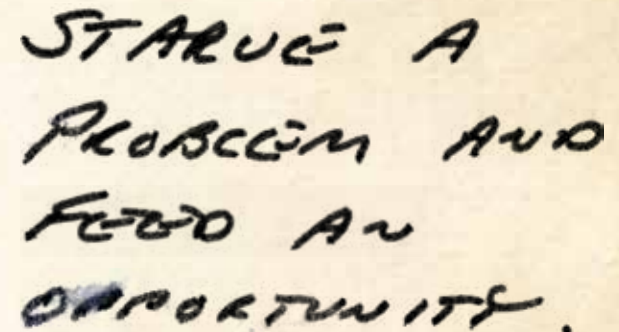 STARVE A
PROBLEM AND
FEED AN
OPPORTUNITY.